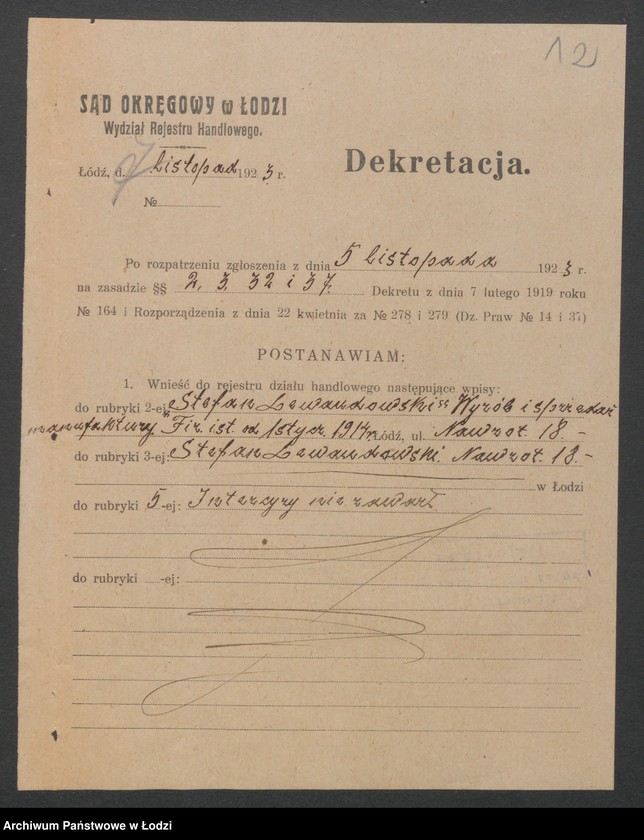 12
SĄD OKRĘGOWY w ŁODZI
Wydział Rejestru Handlowego.
Łódź, d. listopad 1923 r.
Dekretacja.
№
Po rozpatrzeniu zgłoszenia z dnia 5 listopada 1923 r.
na zasadzie §§ 2, 3, 32 i 37. Dekretu z dnia 7 lutego 1919 roku
№ 164 i Rozporządzenia z dnia 22 kwietnia za № 278 i 279 (Dz. Praw № 14 i 37)
POSTANAWIAM:
1. Wnieść do rejestru działu handlowego następujące wpisy:
do rubryki 2-ej: „Stefan Lewandowski" Wyrób i sprzedaż
manufaktury. Fir. ist. od 1 stycz. 1917 r. Łódź, ul. Nawrot. 18. -
do rubryki 3-ej: Stefan Lewandowski. Nawrot. 18. -
w Łodzi
do rubryki 5-ej: Intercyzy nie zawarł
do rubryki -ej:
Archiwum Państwowe w Łodzi